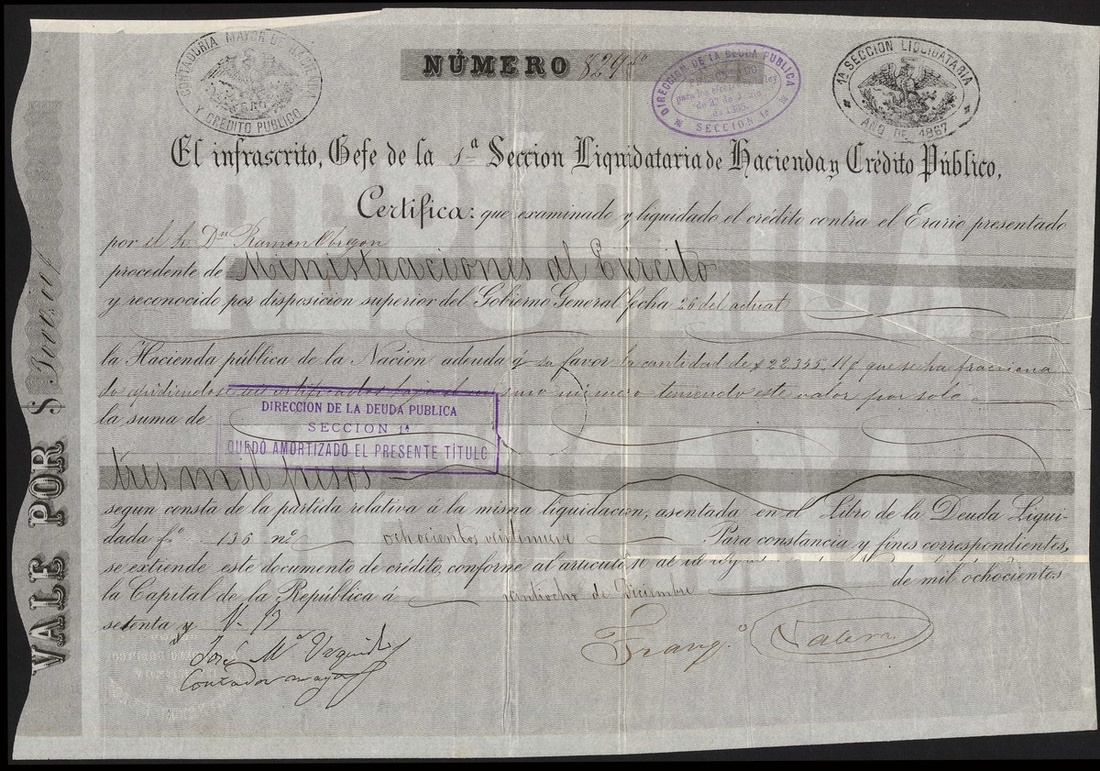 NÚMERO 829
CONTADURIA MAYOR DE HACIENDA Y CRÉDITO PUBLICO
DIRECCION DE LA DEUDA PUBLICA
SECCION 1ª
1ª SECCION LIQUIDATARIA
AÑO DE 1867
El infrascrito, Gefe de la 1ª Seccion Liquidataria de Hacienda y Crédito Público,
Certifica: que examinado y liquidado el crédito contra el Erario presentado
por el Sr. Dn Ramon Obregon
procedente de Ministraciones al Ejército
y reconocido por disposicion superior del Gobierno General fecha 26 del actual
la Hacienda pública de la Nacion adeuda á su favor la cantidad de $22.335 que se ha fracciona
do certificados bajo el mismo número teniendo este valor por solo
la suma de
DIRECCIÓN DE LA DEUDA PUBLICA
SECCION 1ª
QUEDÓ AMORTIZADO EL PRESENTE TÍTULO
tres mil pesos
segun consta de la partida relativa á la misma liquidacion, asentada en el Libro de la Deuda Liqui-
dada fº 136 nº ochocientos veintinueve Para constancia y fines correspondientes,
se extiende este documento de crédito, conforme al articulo 10 de la ley
la Capital de la Republica á veintiocho de Diciembre de mil ochocientos
setenta y
José Mª
Contador mayor
Franº
VALE POR $
REPÚBLICA
MEXICANA